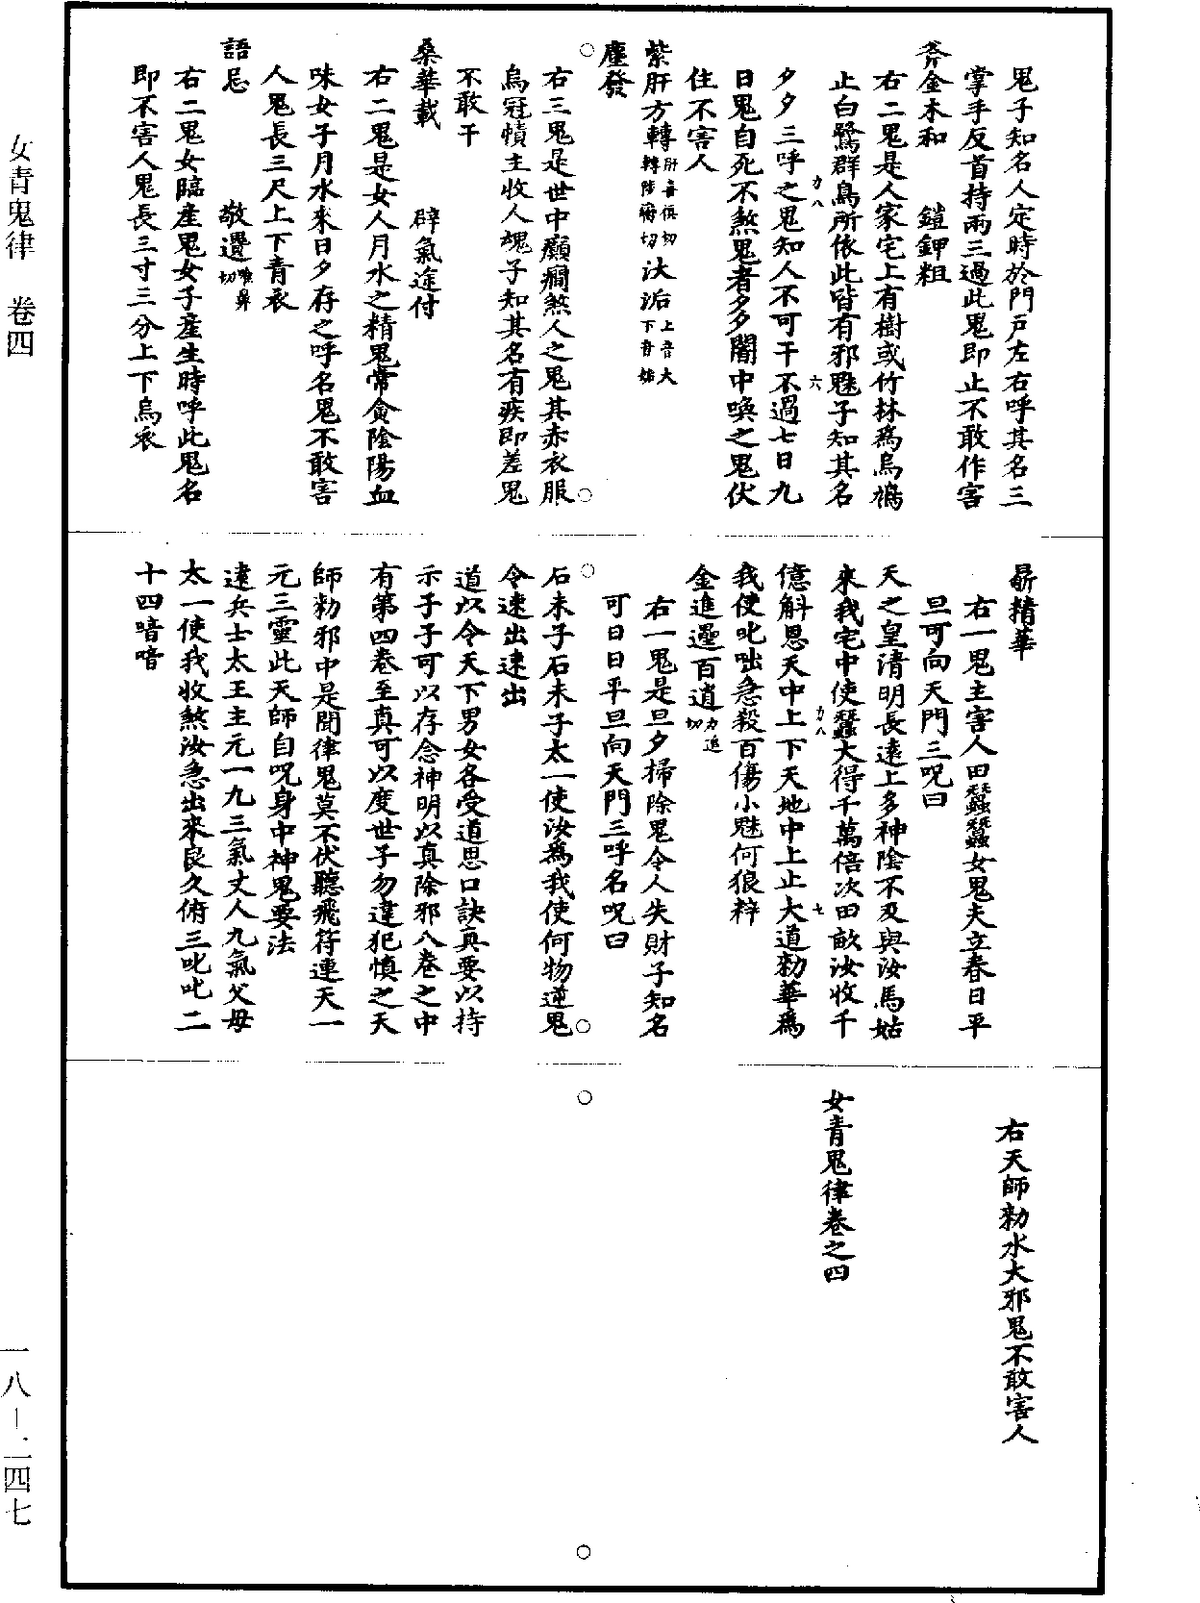 鬼子知名人定時於門戶左右呼其名三
掌手反首持兩三過此鬼即止不敢作害
斧金木和　鎧鉀粗
右二鬼是人家宅上有樹或竹林爲烏鵶
止白鷺群鳥所依此皆有邪魅子知其名
夕夕三呼之鬼知人不可干不過七日九
日鬼自死不煞鬼者多多闇中喚之鬼伏
住不害人
紫肝方轉 汏㳷上音大下音始
塵發
右三鬼是世中癲癎煞人之鬼其赤衣服
烏冠幘主收人魂子知其名有疾即差鬼
不敢干
桑華載　辟氣途付
右二鬼是女人月水之精鬼常貪陰陽血
味女子月水來日夕存之呼名鬼不敢害
人鬼長三尺上下青衣
語忌　敬遷
右二鬼女臨産鬼女子産生時呼此鬼名
即不害人鬼長三寸三分上下烏衣
精華
右一鬼主害人田蠶蠶女鬼夫立春日平
旦可向天門三呪曰
天之皇清明長遠上多神陰不及與汝馬姑
來我宅中使蠶大得千萬倍次田畝汝收千
億斛恩天中上下天地中上止大道勑華爲
我使叱咄急殺百傷小魅何狼粹
金進遷百逍力進切
右一鬼是旦夕掃除鬼令人失財子知名
可日日平旦向天門三呼名呪曰
石未子石未子太一使汝爲我使何物逆鬼
令速出速出
道以令天下男女各受道思口訣真要以持
示子子可以存念神明以真除邪八卷之中
有第四卷至真可以度世子勿違犯慎之天
師勑邪中是聞律鬼莫不伏聽飛符連天一
元三靈此天師自呪身中神鬼要法
逮兵士太王主元一九三氣丈人九氣父母
太一使我收煞汝急出來良久俯三叱叱二
十四喑喑
右天師勑水大邪鬼不敢害人
女青鬼律卷之四
力八
六
力八
七
女青鬼律　卷四
一八－二四七